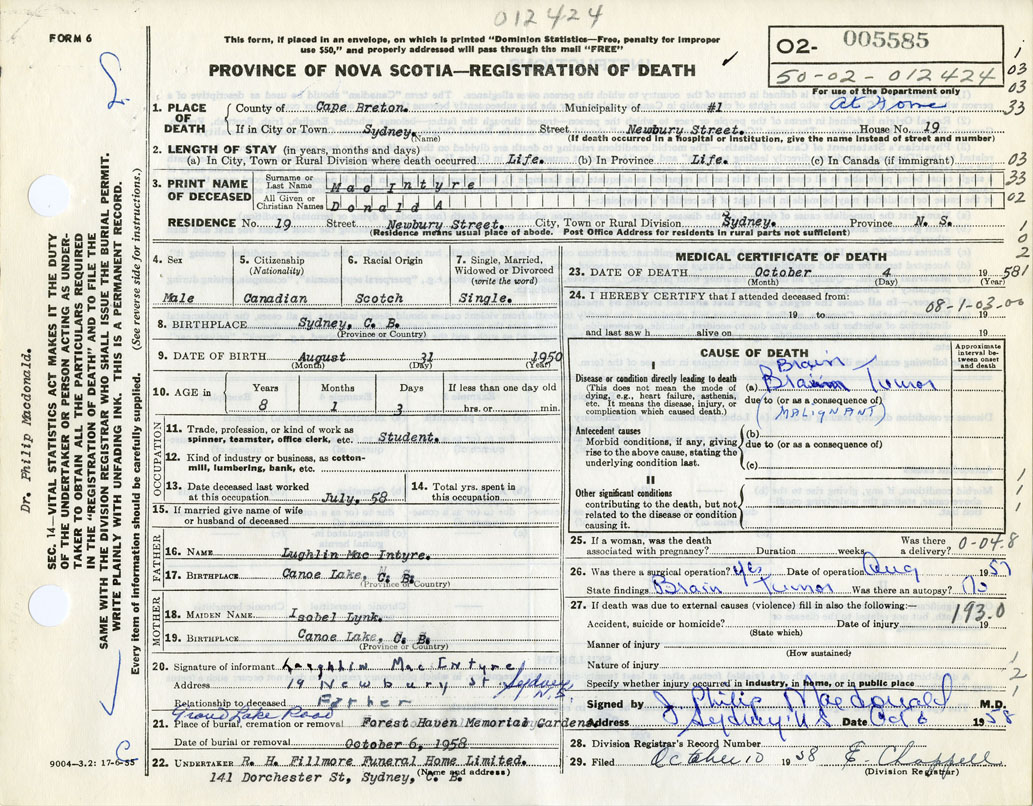 012424
FORM 6
This form, if placed in an envelope, on which is printed "Dominion Statistics—Free, penalty for improper
use $50," and properly addressed will pass through the mail "FREE"
PROVINCE OF NOVA SCOTIA—REGISTRATION OF DEATH
02- 005585
50-02-012424
For use of the Department only
1. PLACE OF DEATH
County of Cape Breton. Municipality of #1 At Home
If in City or Town Sydney. Street Newbury Street. House No. 19
(Name) (If death occurred in hospital or institution, give the name instead of street and number)
2. LENGTH OF STAY (in years, months and days)
(a) In City, Town or Rural Division where death occurred Life. (b) In Province Life. (c) In Canada (if immigrant)
3. PRINT NAME OF DECEASED
Surname or Last Name Mac Intyre
All Given or Christian Names Donald A
RESIDENCE No. 19 Street Newbury Street. City, Town or Rural Division Sydney. Province N. S.
(Residence means usual place of abode. Post Office Address for residents in rural parts not sufficient)
4. Sex
Male
5. Citizenship (Nationality)
Canadian
6. Racial Origin
Scotch
7. Single, Married, Widowed or Divorced (write the word)
Single.
8. BIRTHPLACE Sydney, C. B.
(Province or Country)
9. DATE OF BIRTH August 31 1950
(Month) (Day) (Year)
10. AGE in
Years Months Days If less than one day old
8 1 3 hrs. or min.
OCCUPATION
11. Trade, profession, or kind of work as spinner, teamster, office clerk, etc. Student.
12. Kind of industry or business, as cotton-mill, lumbering, bank, etc.
13. Date deceased last worked at this occupation July. 58
14. Total yrs. spent in this occupation
15. If married give name of wife or husband of deceased
FATHER
16. NAME Lughlin Mac Intyre.
17. BIRTHPLACE Canoe Lake, C. B.
(Province or Country)
MOTHER
18. MAIDEN NAME Isobel Lynk.
19. BIRTHPLACE Canoe Lake, C. B.
(Province or Country)
20. Signature of informant Laughlin MacIntyre
Address 19 Newbury St Sydney N.S
Relationship to deceased Father
Grand Lake Road
21. Place of burial, cremation or removal Forest Haven Memorial Gardens
Date of burial or removal October 6, 1958
22. UNDERTAKER R. H. Fillmore Funeral Home Limited.
(Name and address)
141 Dorchester St, Sydney, C. B.
9004—3.2: 17-6-55
MEDICAL CERTIFICATE OF DEATH
23. DATE OF DEATH October 4 19 58
(Month) (Day) (Year)
24. I HEREBY CERTIFY that I attended deceased from:
08-1-03-00
19 to 19
and last saw h alive on 19
CAUSE OF DEATH
Approximate interval between onset and death
I
Disease or condition directly leading to death
(This does not mean the mode of dying, e.g., heart failure, asthenia, etc. It means the disease, injury, or complication which caused death.)
Brain
(a) Brain Tumor
due to (or as a consequence of)
(MALIGNANT)
Antecedent causes
Morbid conditions, if any, giving rise to the above cause, stating the underlying condition last.
(b)
due to (or as a consequence of)
(c)
II
Other significant conditions
contributing to the death, but not related to the disease or condition causing it.
25. If a woman, was the death associated with pregnancy? Duration weeks Was there a delivery?
0-04.8
26. Was there a surgical operation? yes Date of operation Aug 1957
State findings Brain Tumor Was there an autopsy? No
27. If death was due to external causes (violence) fill in also the following:—
193.0
Accident, suicide or homicide? Date of injury 19
(State which)
Manner of injury
(How sustained)
Nature of injury
Specify whether injury occurred in industry, in home, or in public place
Signed by J Philip Macdonald M.D.
Address Sydney NS Date Oct 6 1958
28. Division Registrar's Record Number
29. Filed October 10 1958 E. Chappell
(Division Registrar)
Dr. Philip Macdonald.
SEC. 14—VITAL STATISTICS ACT MAKES IT THE DUTY
OF THE UNDERTAKER OR PERSON ACTING AS UNDER-
TAKER TO OBTAIN ALL THE PARTICULARS REQUIRED
IN THE "REGISTRATION OF DEATH" AND TO FILE THE
SAME WITH THE DIVISION REGISTRAR WHO SHALL ISSUE THE BURIAL PERMIT.
WRITE PLAINLY WITH UNFADING INK. THIS IS A PERMANENT RECORD.
Every item of information should be carefully supplied. (See reverse side for instructions.)
1
03
03
33
03
33
02
1
0
2
1
1
1
1
1
2
1